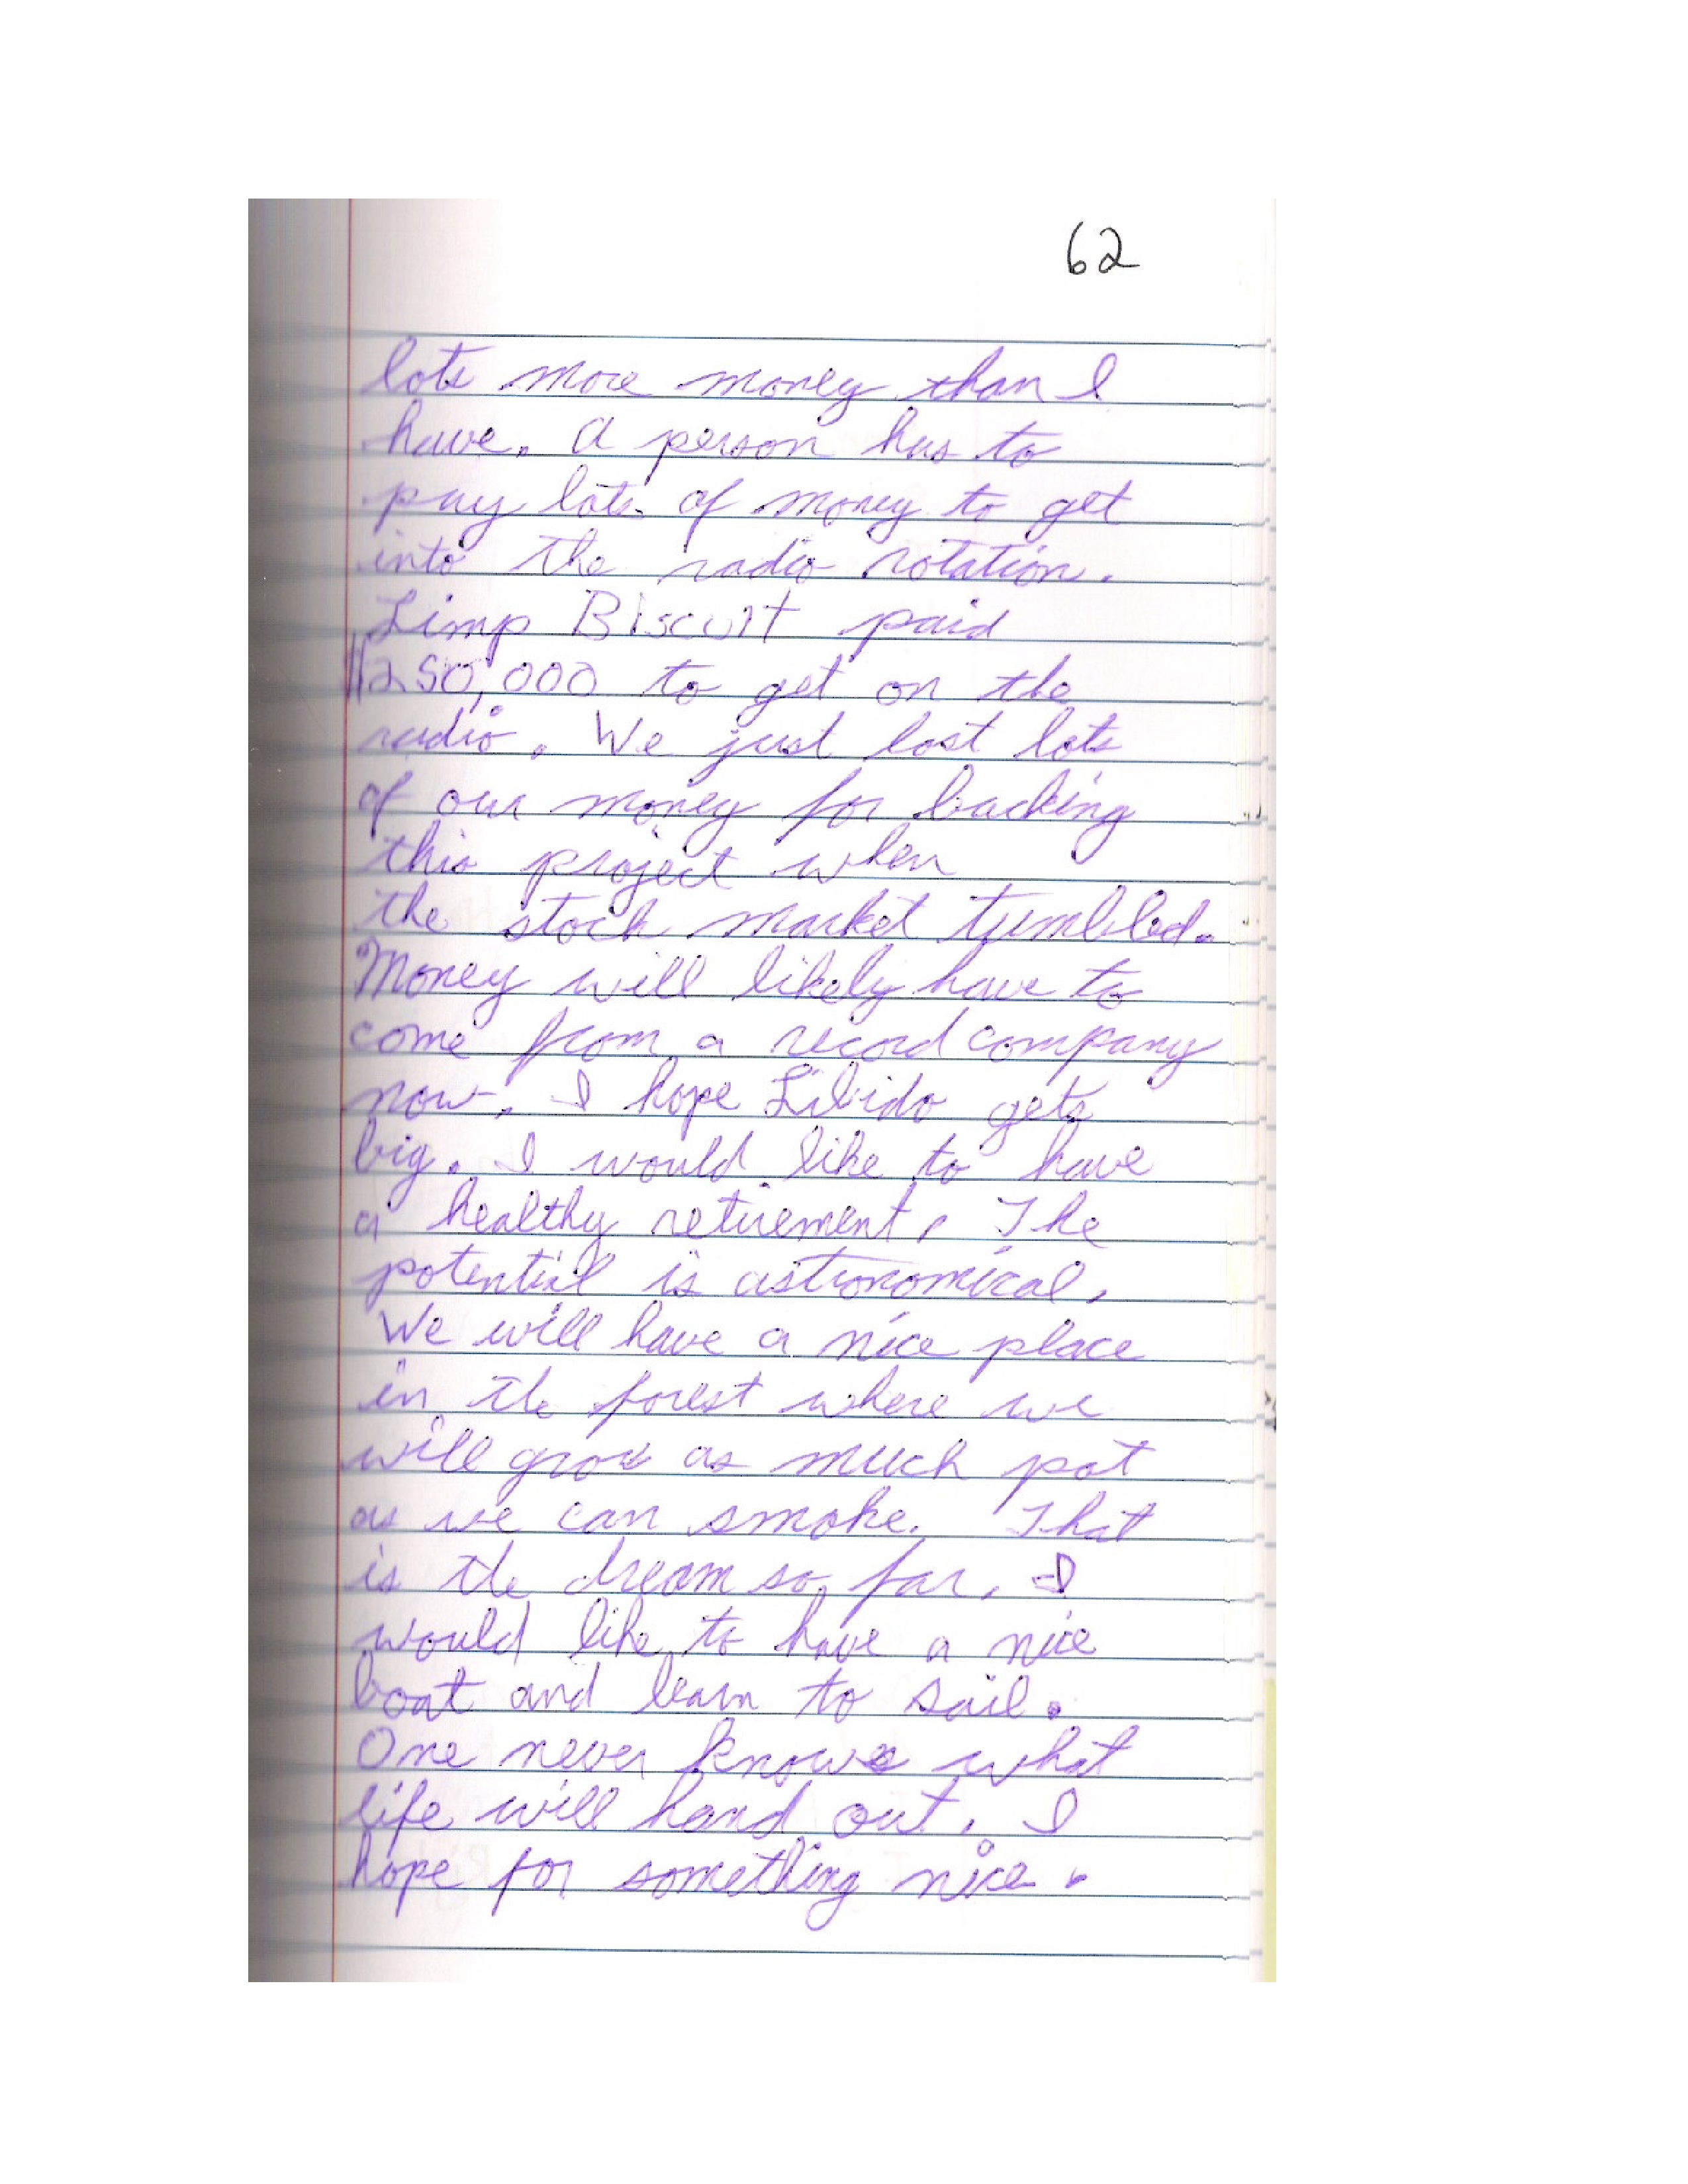 62
lots more money than I
have. A person has to
pay lots of money to get
into the radio rotation.
Limp Biscuit paid
$250,000 to get on the
radio. We just lost lots
of our money for backing
this project when
the stock market tumbled.
Money will likely have to
come from a record company
now. I hope Libido gets
big. I would like to have
a healthy retirement. The
potential is astronomical.
We will have a nice place
in the forest where we
will grow as much pot
as we can smoke. That
is the dream so far. I
would like to have a nice
boat and learn to sail.
One never knows what
life will hand out. I
hope for something nice.